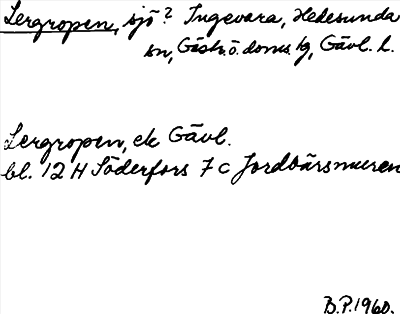 Lergropen, sjö? Ingevara, Hedesunda
sn, Gästr. ö. doms. tg, Gävl. l.
Lergropen, ek Gävl.
bl. 12 H Söderfors 7 c Jordbärsmuren
B.P. 1960.